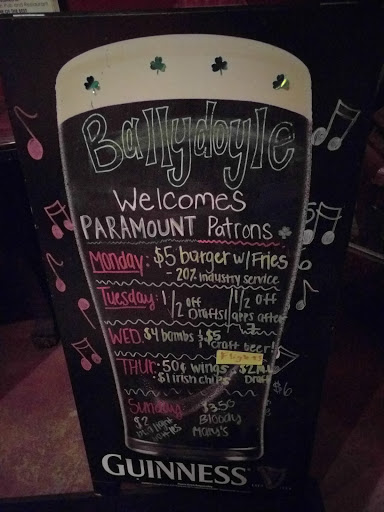 Ballydoyle
Welcomes
PARAMOUNT Patrons
Monday: $5 burger w/ Fries
- 20% industry service
Tuesday: 1/2 off Drafts! 1/2 off apps after
WED: $4 bombs $5 craft beer!
THUR: 50¢ wings $2 Draft
$1 irish chips $6
Sunday: $3.50
$2 Bloody
Mary's
GUINNESS